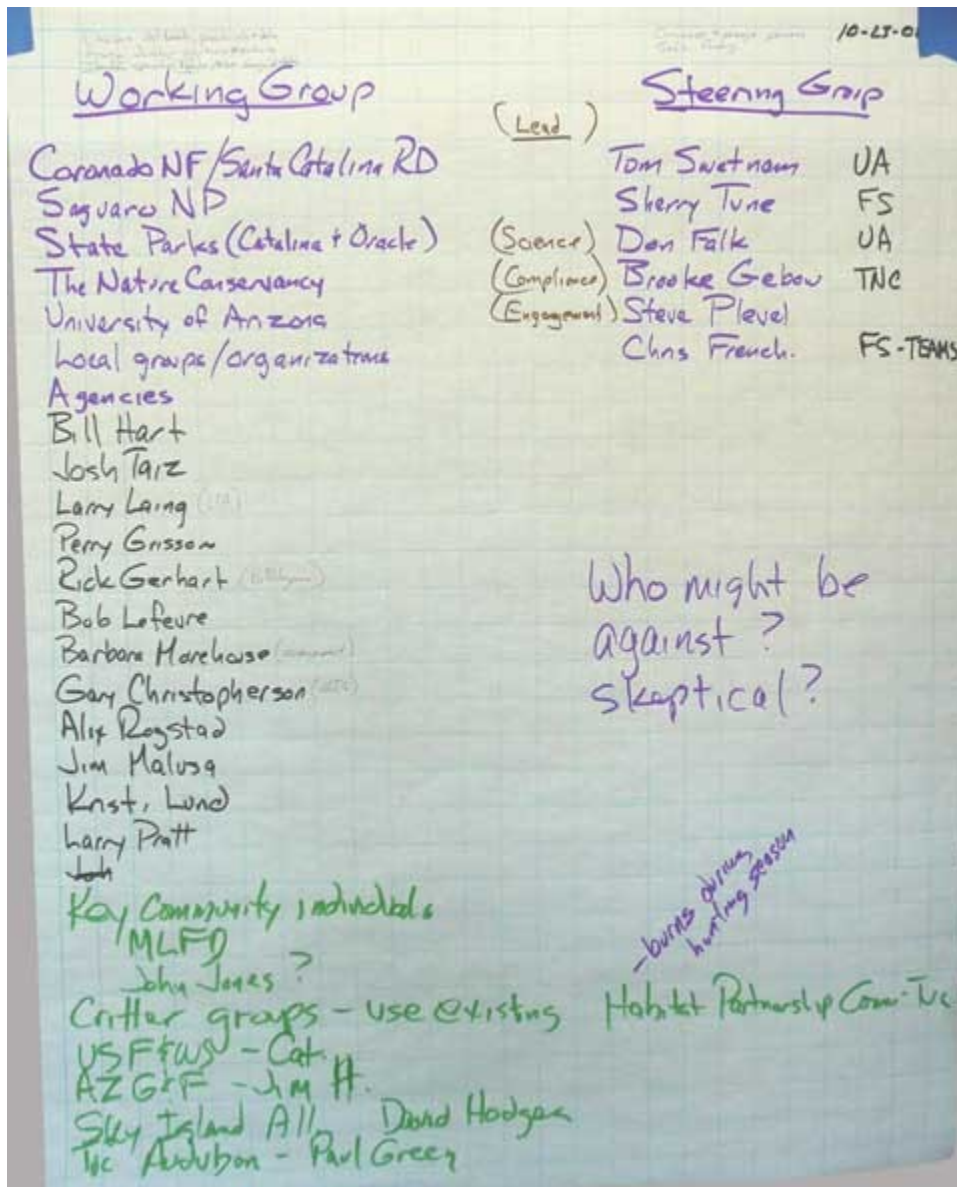 10-25-0
Working Group
Coronado NF/Santa Catalina RD
Saguaro NP
State Parks (Catalina + Oracle)
The Nature Conservancy
University of Arizona
Local groups/organizations
Agencies
Bill Hart
Josh Taiz
Larry Laing
Perry Grissom
Rick Gerhart
Bob Lefevre
Barbara Morehouse
Gary Christopherson
Alix Rogstad
Jim Malusa
Kristi Lund
Larry Pratt
Joh
Key Community individuals
MLFD
John Jones ?
Critter groups - use existing
USF&WS - Cat.
AZG&F - Jim H.
Sky Island All. David Hodges
Tuc Audubon - Paul Green
Steering Group
(Lead) Tom Swetnam UA
Sherry Tune FS
(Science) Don Falk UA
(Compliance) Brooke Gebow TNC
(Engagement) Steve Plevel
Chris French. FS-TEAMS
Who might be
against?
skeptical?
- burns during
hunting season
Habitat Partnership Comm-Tuc